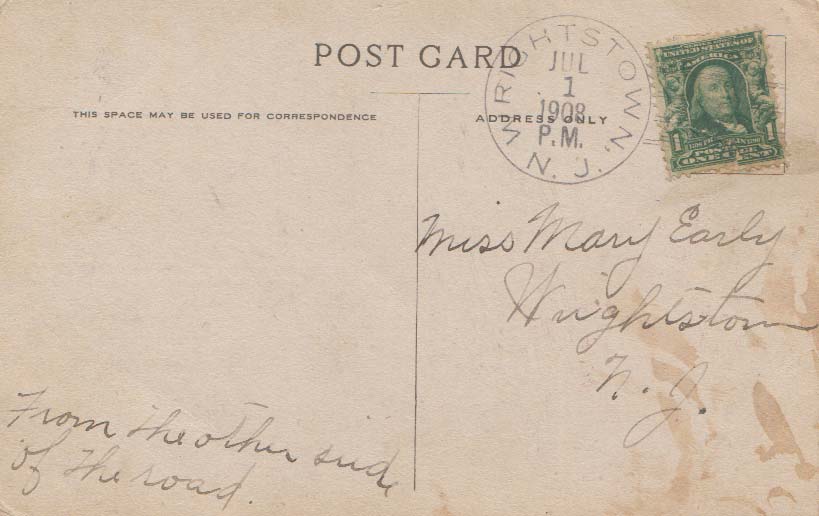 POST CARD
THIS SPACE MAY BE USED FOR CORRESPONDENCE
ADDRESS ONLY
WRIGHTSTOWN, N. J.
JUL
1
1908
P.M.
UNITED STATES OF
AMERICA
1 1
POSTAGE
ONE CENT
Miss Mary Early
Wrightstown
N. J.
From the other side
of the road.